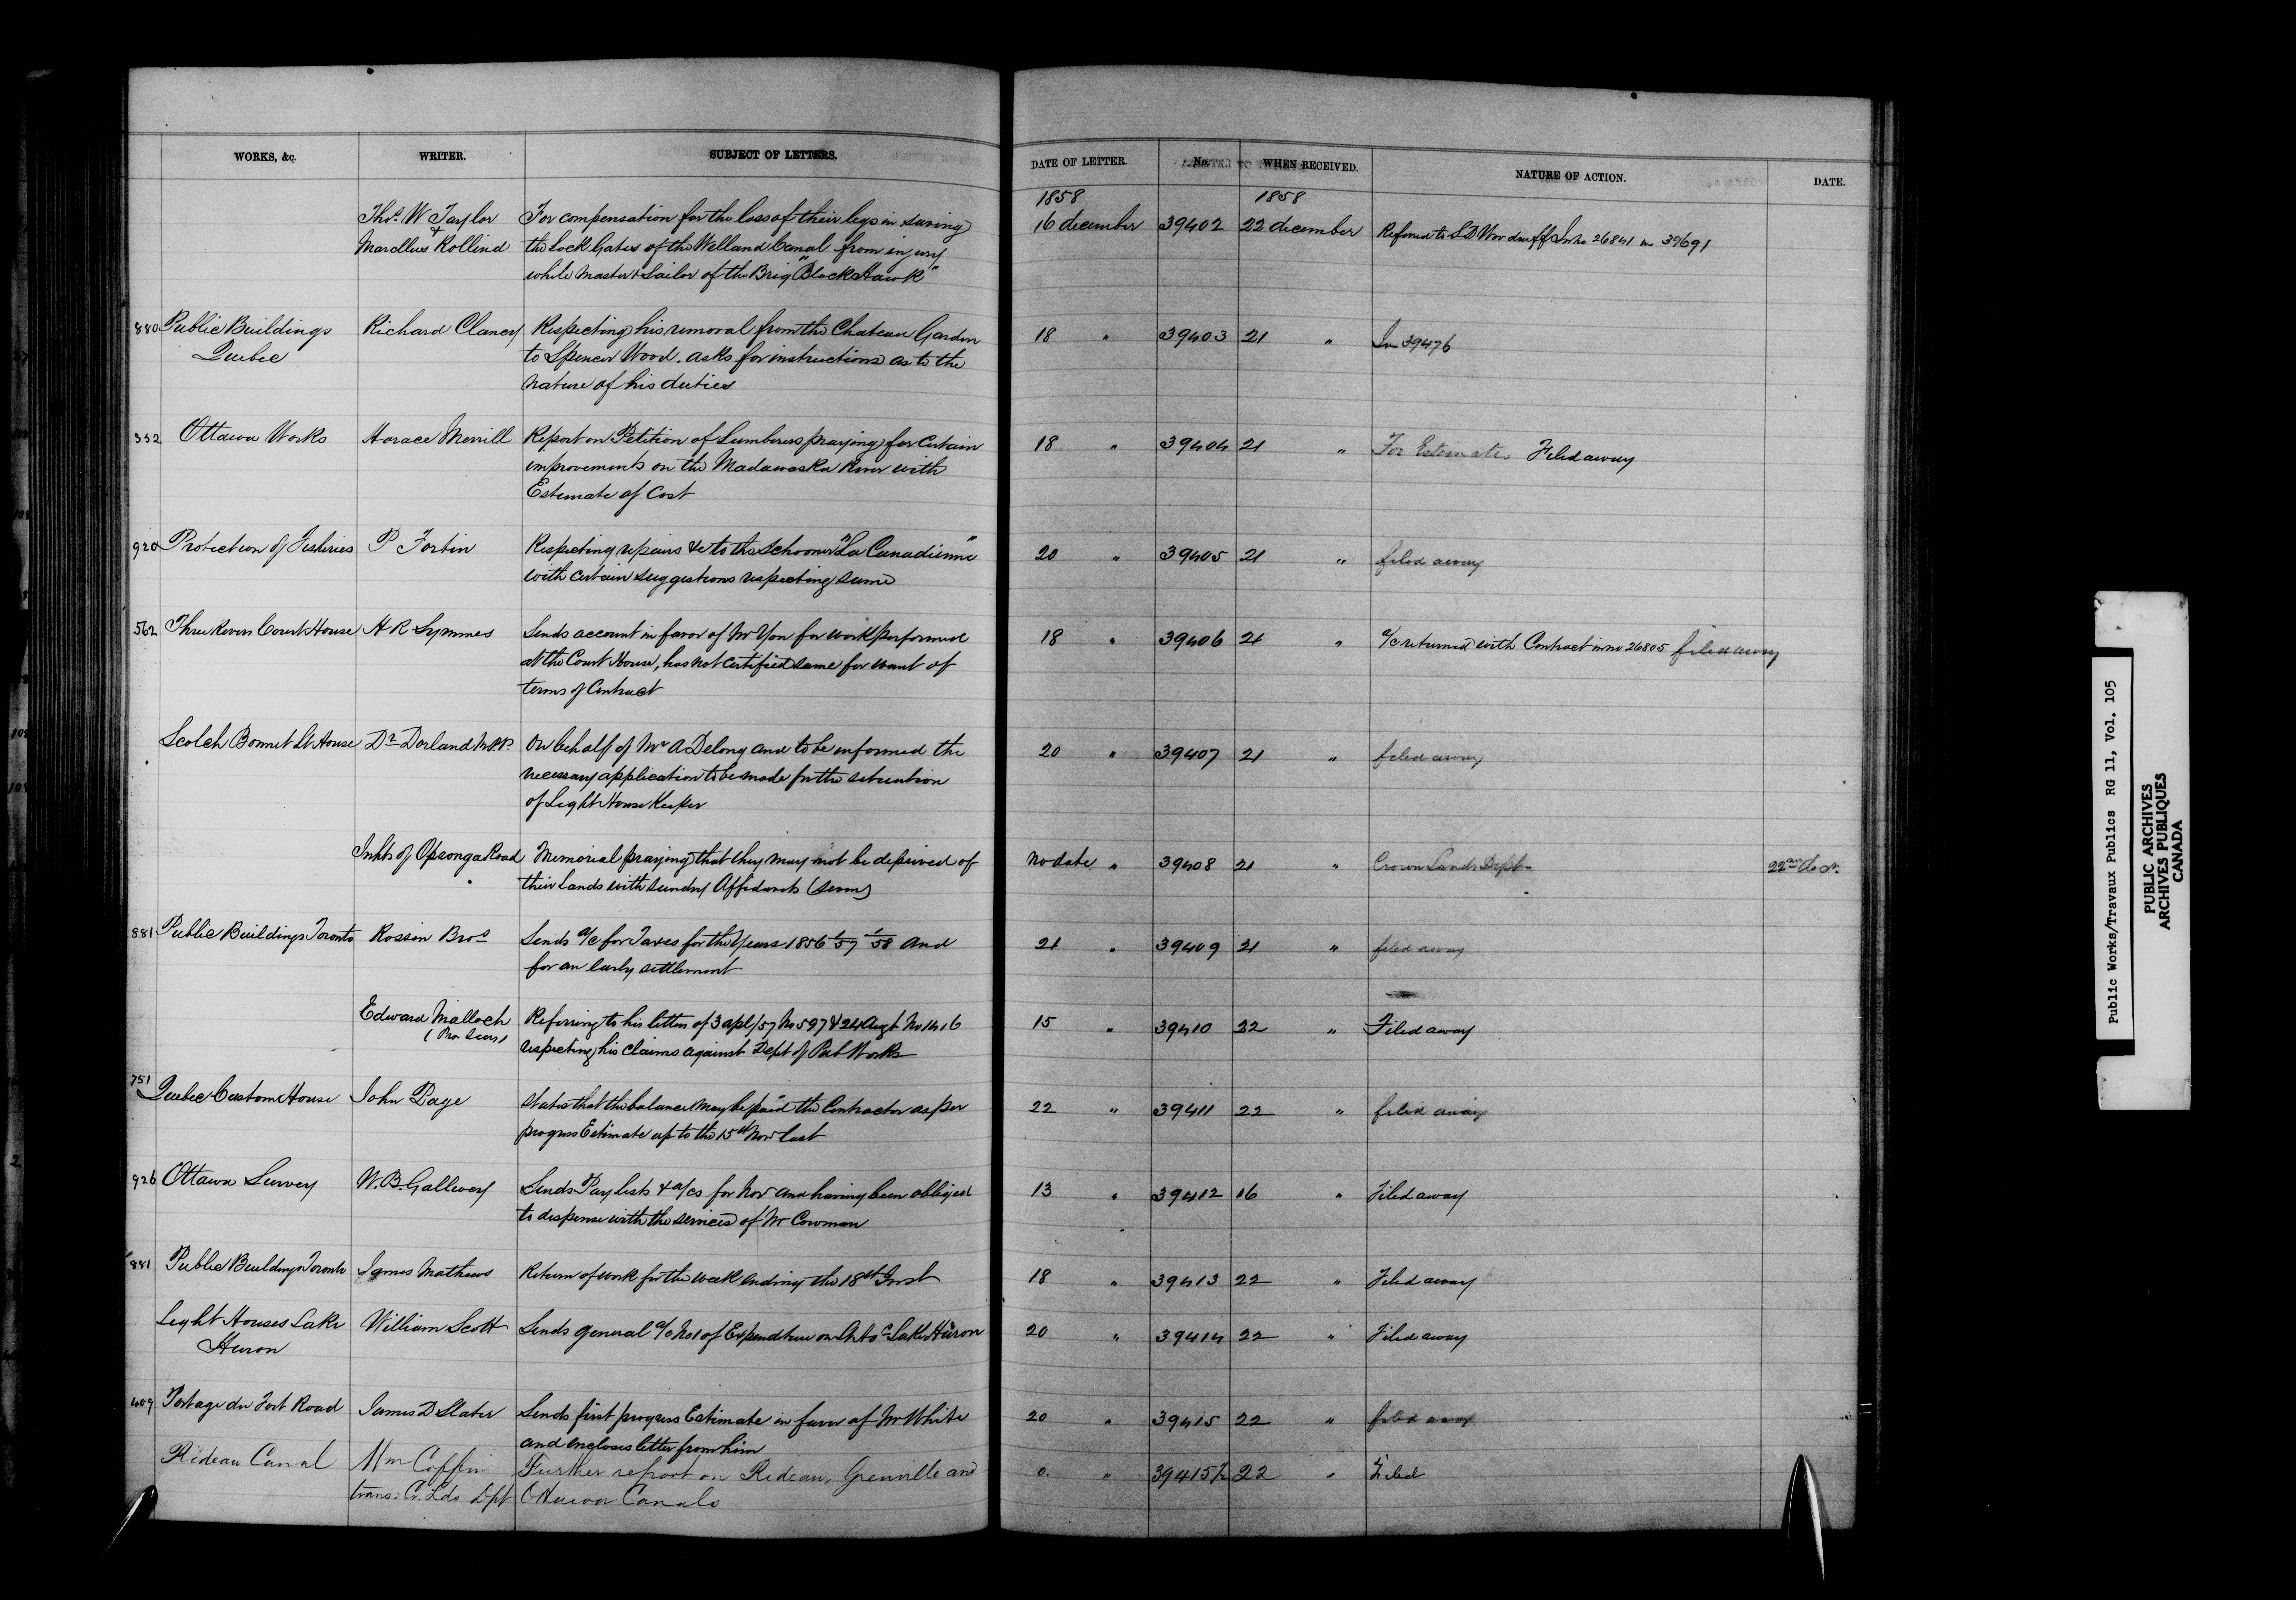 WORKS, &c. WRITER. SUBJECT OF LETTERS. DATE OF LETTER. No. WHEN RECEIVED. NATURE OF ACTION. DATE.
1858 1858
Thos. W Taylor For compensation for the loss of their legs in saving 16 december 39402 22 december Referred to S D Woodruff In no 26841 in 39691
& Marcellus Rollind the lock Gates of the Welland Canal from injury
while Master & Sailor of the Brig "Black Hawk"
880 Public Buildings Richard Clancy Respecting his removal from the Chateau Garden 18 " 39403 21 " In 39476
Quebec to Spencer Wood. asks for instructions as to the
nature of his duties
332 Ottawa Works Horace Merrill Report on Petition of Lumberers praying for certain 18 " 39404 21 " For Estimate Filed away
improvements on the Madawaska River with
Estimate of Cost
920 Protection of Fisheries P Fortin Respecting repairs &c to the Schooner "La Canadienne" 20 " 39405 21 " filed away
with certain suggestions respecting same
562 Three Rivers Court House H R Symmes Sends account in favor of Mr Yon for work performed 18 " 39406 21 " a/c returned with Contract in no 26805 filed away
at the Court House, has not certified same for want of
terms of Contract
Scotch Bonnet Lt House Dr Dorland M.P.P. On behalf of Mr A Delong and to be informed the 20 " 39407 21 " filed away
necessary application to be made for the situation
of Light House Keeper
Inhts of Opeonga Road Memorial praying that they may not be deprived of No date " 39408 21 " Crown Lands Dept 22nd Decr.
their lands with sundry Affidavits
881 Public Buildings Toronto Rossin Bros Sends a/c for Taxes for the Years 1856 '57 '58 and 21 " 39409 21 " filed away
for an early settlement
Edward Malloch Referring to his letters of 3 apl/57 No 597 & 24 Augt No 1416 15 " 39410 22 " Filed away
respecting his claims against Dept of Pub Works
751 Quebec Custom House John Page States that the balance may be paid the Contractor as per 22 " 39411 22 " filed away
progress Estimate up to the 15th Nov last
926 Ottawa Survey W. B. Gallwey Sends Pay lists & a/cs for Nov and having been obliged 13 " 39412 16 " Filed away
to dispense with the services of Mr Cowman
881 Public Buildings Toronto James Mathews Return of work for the week ending the 18th Inst 18 " 39413 22 " Filed away
Light Houses Lake William Scott Sends general a/c No 1 of Expenditure on Lt Hos Lake Huron 20 " 39414 22 " Filed away
Huron
409 Portage du Fort Road James D Slater Sends first progress Estimate in favor of Mr White 20 " 39415 22 " filed away
and encloses letter from him
Rideau Canal Wm Coffin Further report on Rideau, Grenville and 0. " 39415½ 22 " Filed
trans: Cr. Lds Dpt Ottawa Canals
Public Works/Travaux Publics RG 11, Vol. 105
PUBLIC ARCHIVES
ARCHIVES PUBLIQUES
CANADA